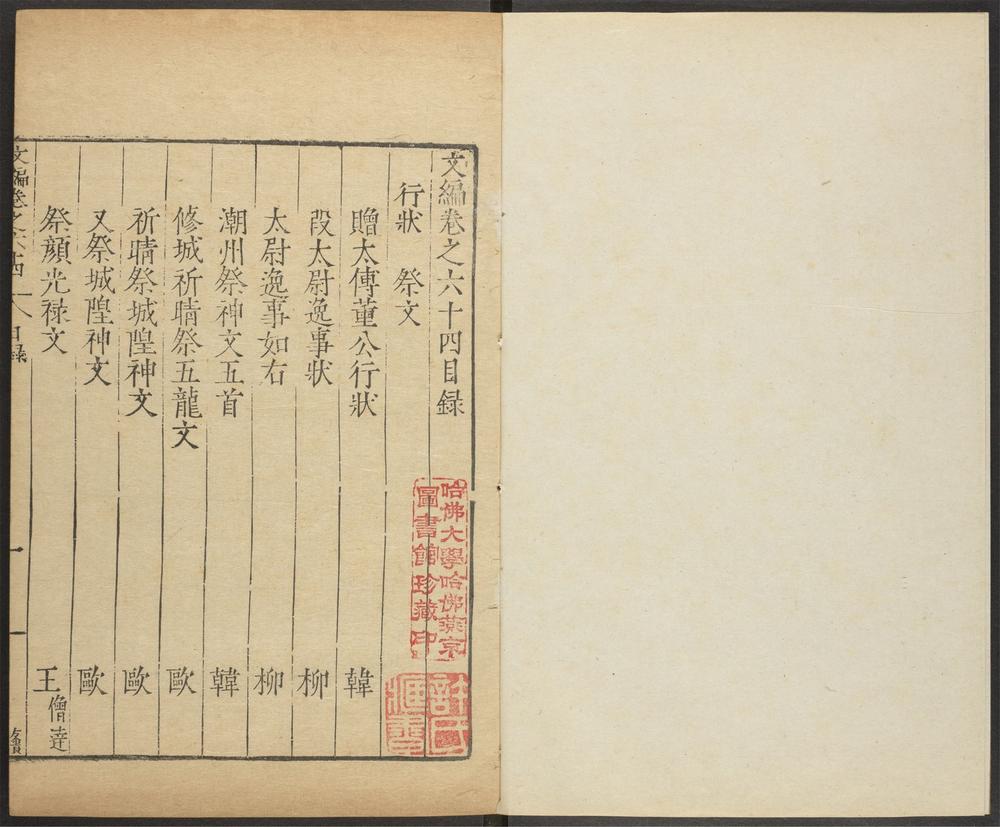 文編卷之六十四目録
行狀 祭文
贈太傅董公行狀 韓
段太尉逸事狀 柳
太尉逸事如右 柳
潮州祭神文五首 韓
修城祈晴祭五龍文 歐
祈晴祭城隍神文 歐
又祭城隍神文 歐
祭顔光禄文 王僧達
文編卷之六十四 目録
一
哈佛大學哈佛燕京
圖書館珍藏印